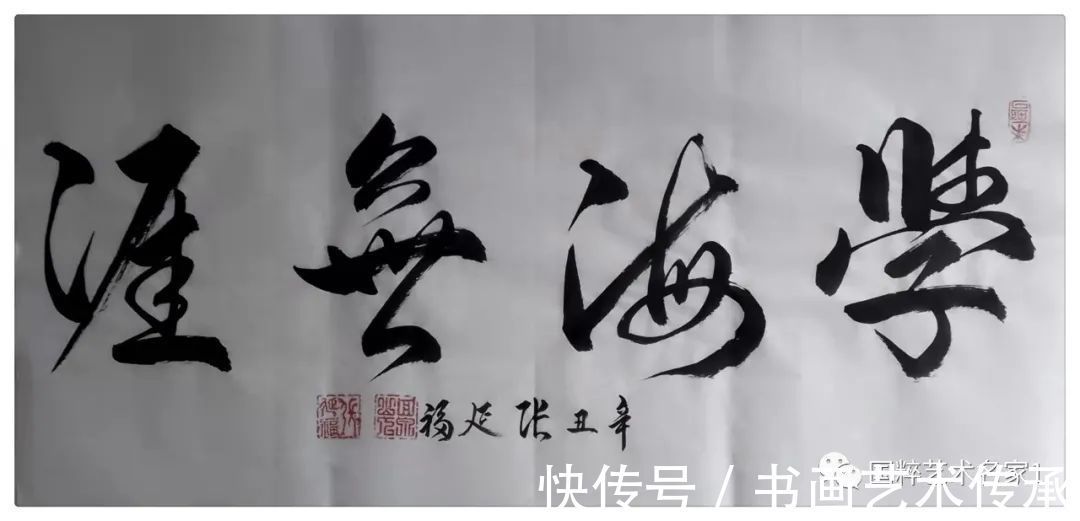 學海無涯
辛丑张延福
国粹艺术名家1
快传号 / 书画艺术传承